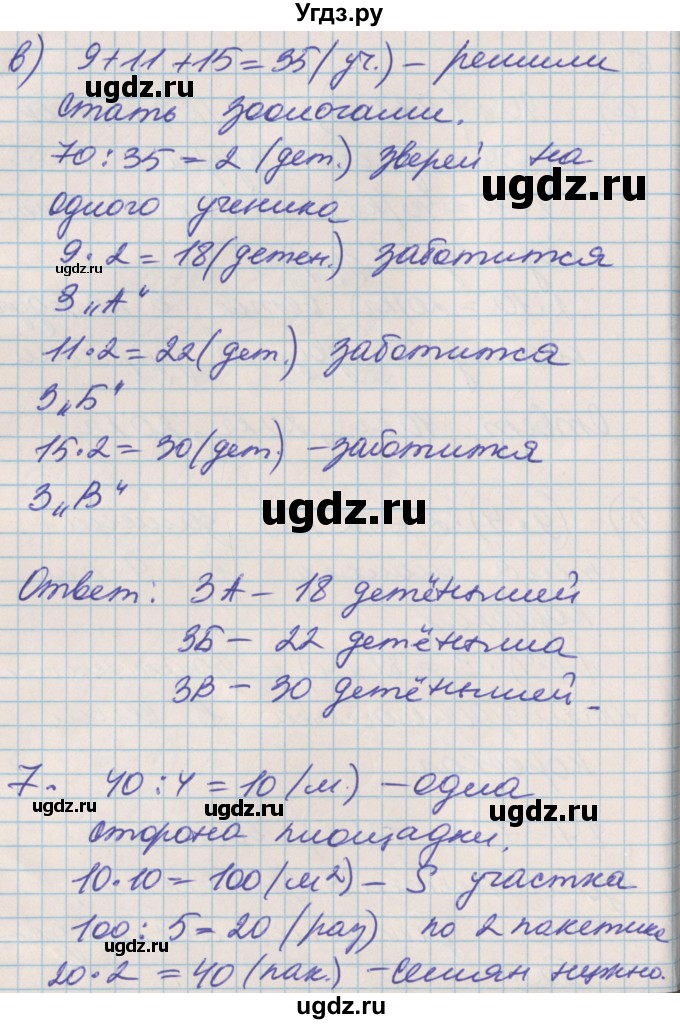 Угдз.ру
в) 9+11+15=35(уч.) – решили
ugdz.ru
стать зоологами.
70:35=2 (дет.) зверей на
ugdz.ru
одного ученика
9·2=18(детен.) заботится
ugdz.ru
3 „А“
11·2=22(дет.) заботится
ugdz.ru
3„Б“
15·2=30(дет.) – заботится
ugdz.ru
3„В“
ugdz.ru
Ответ: 3А – 18 детёнышей
3Б – 22 детёныша
3В – 30 детёнышей.
7. 40:4=10(м.) – одна
ugdz.ru ugdz.ru ugdz.ru
сторона площадки.
10·10=100(м²) – S участка
100:5=20(раз) по 2 пакетика
ugdz.ru ugdz.ru
20·2=40(пак.) – семян нужно.
ugdz.ru